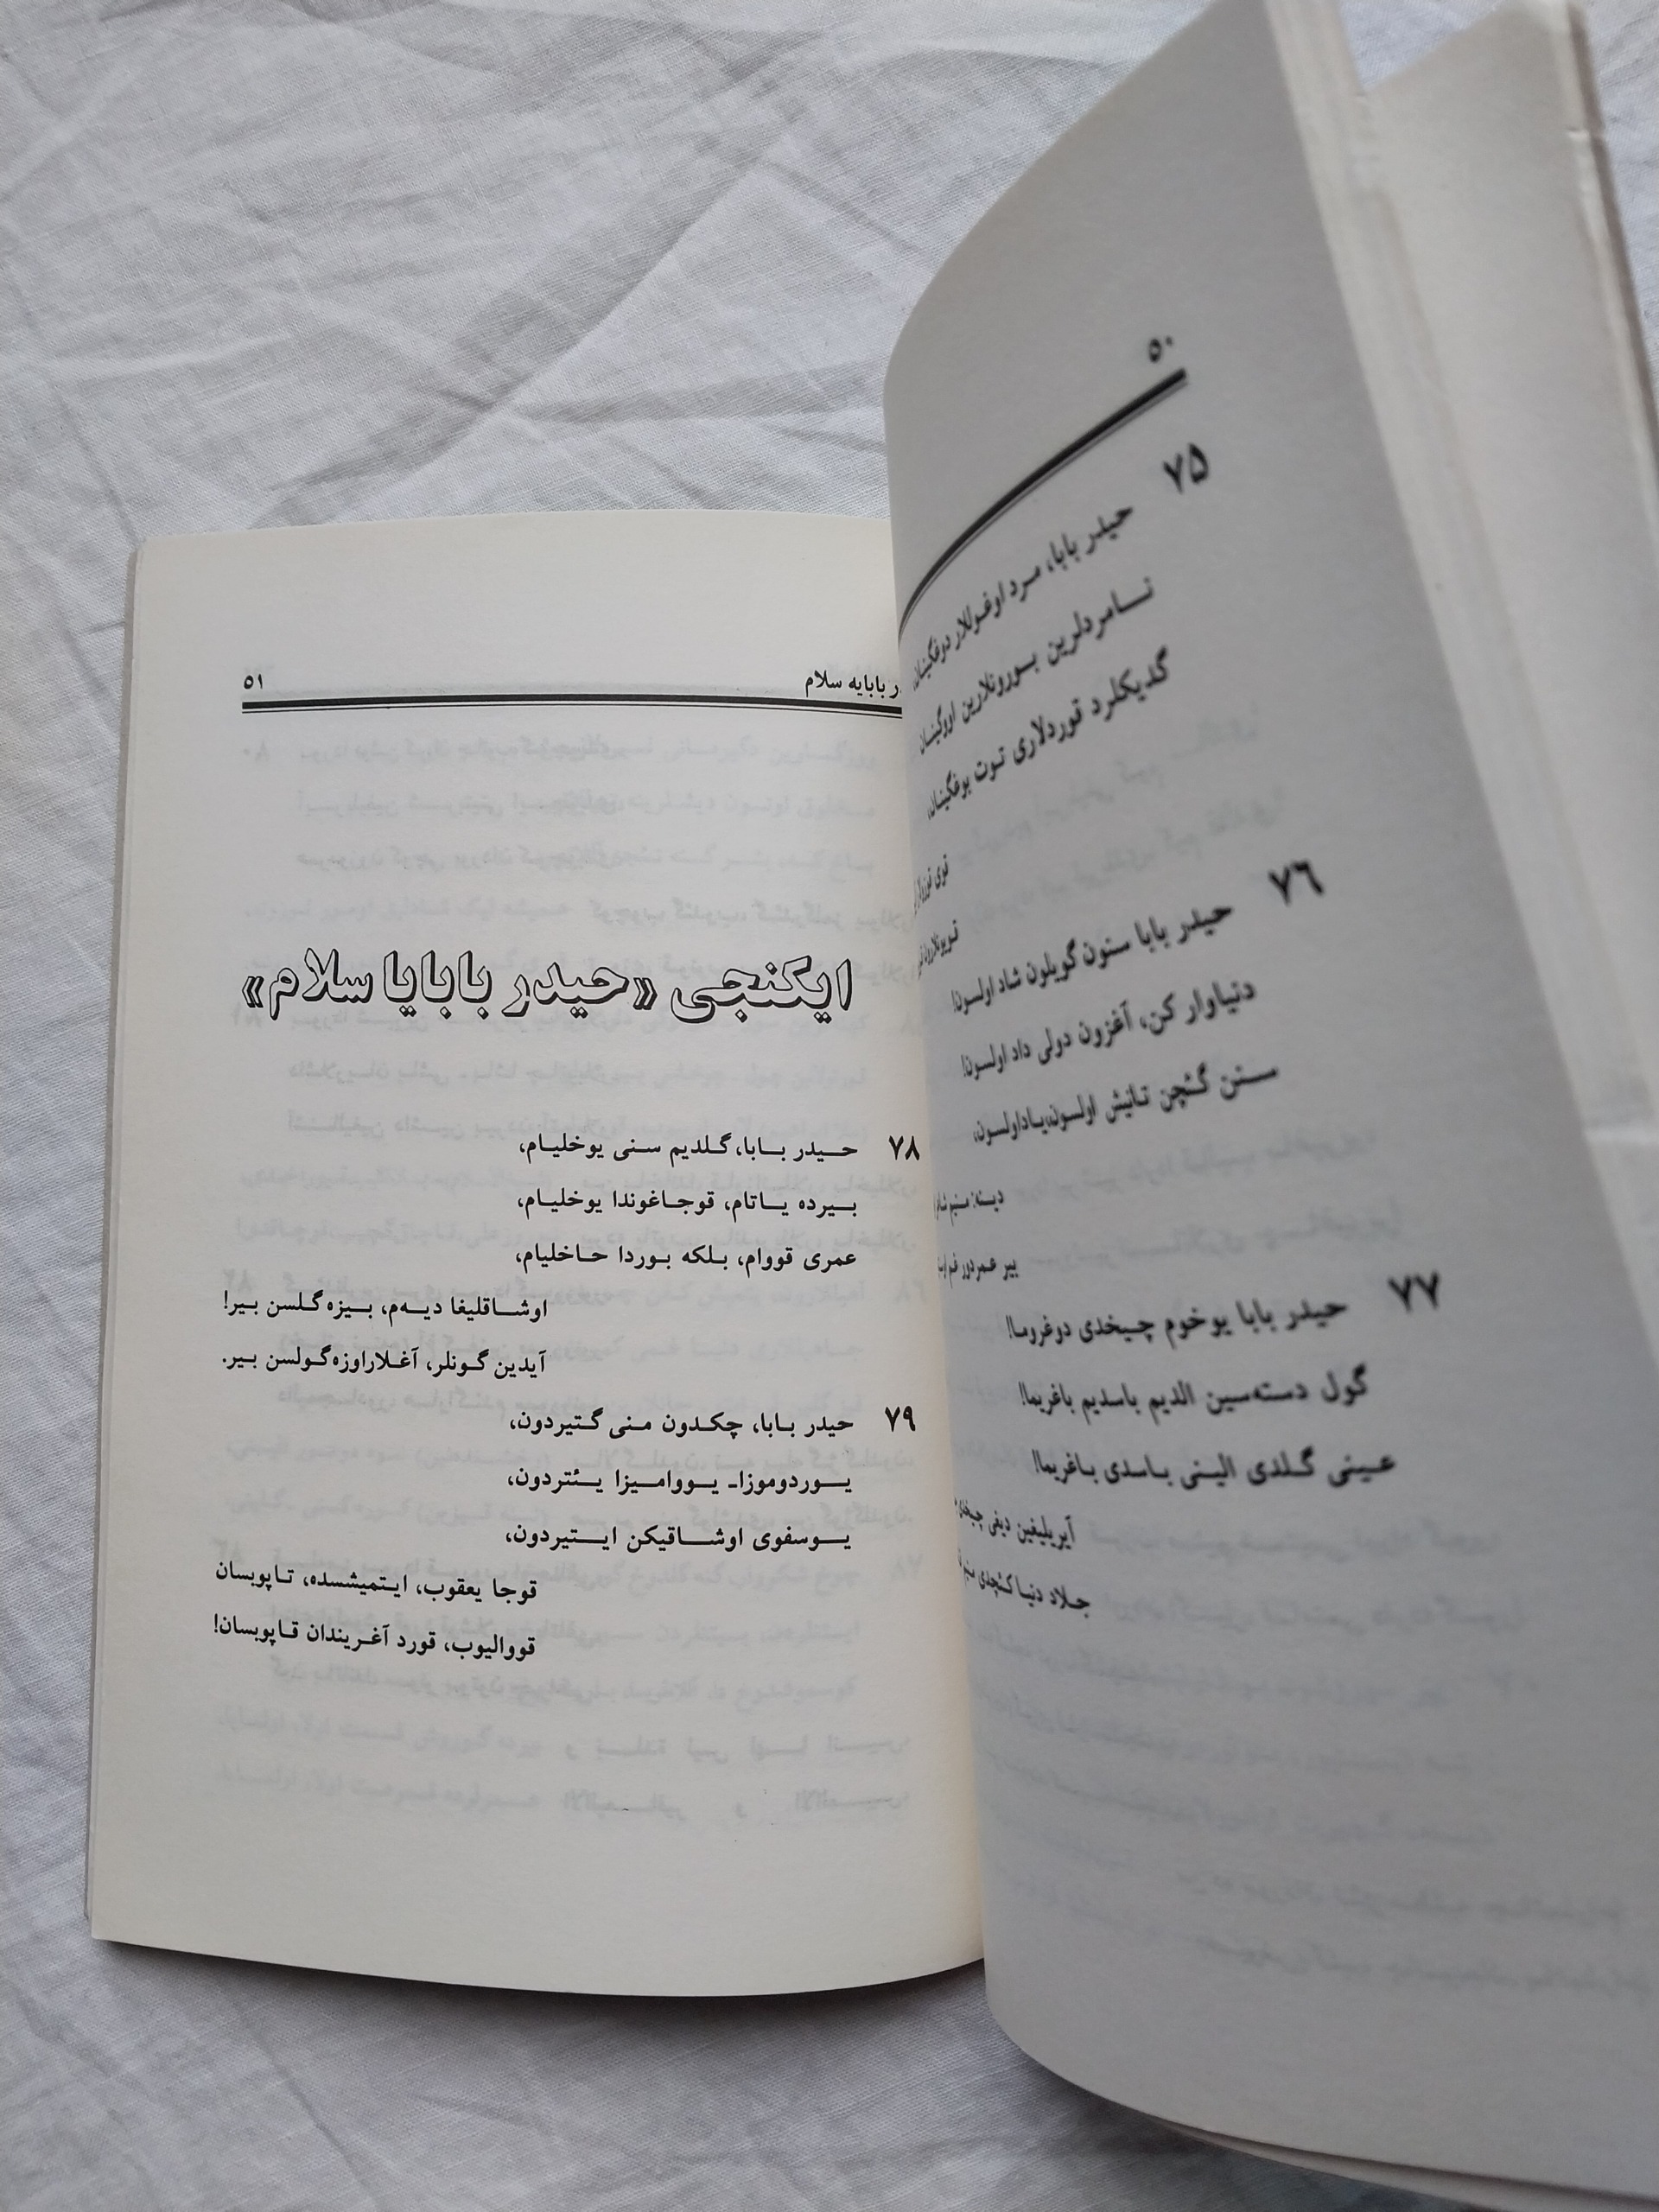 ۵۰
۷۵
حیدر بابا، مرد اوغوللار دوغگینان،
نامردلرین بورونلارین اووگینان
گدیکلرد قوردلاری توت بوغگینان،
قوی
۷۶
حیدر بابا سنون گویلون شاد اولسون!
دنیاوار کن، آغزون دولی داد اولسون!
سنن گئچن تانیش اولسون،یاداولسون،
دینه: منیم
بیر عمردور غم
۷۷
حیدر بابا یوخوم چیخدی دوغروما!
گول دسته‌سین الدیم باسدیم باغریما!
عینی گلدی الینی باسدی باغریما!
آیریلیغین دیغی چیخدی
جلاد دنیا کئچدی منیم
بابایه سلام
۵۱
ایکنجی «حیدر بابایا سلام»
۷۸
حیدر بابا، گلدیم سنی یوخلیام،
بیرده یاتام، قوجاغوندا یوخلیام،
عمری قووام، بلکه بوردا حاخلیام،
اوشاقلیغا دیه‌م، بیزه گلسن بیر!
آیدین گونلر، آغلاراوزه گولسن بیر.
۷۹
حیدر بابا، چکدون منی گتیردون،
یوردوموزا- یووامیزا یئتردون،
یوسفوی اوشاقیکن ایتیردون،
قوجا یعقوب، ایتمیشسده، تاپوبسان
قووالیوب، قورد آغریندان قاپوبسان!